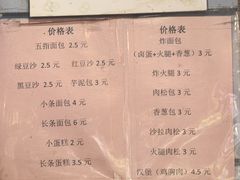 价格表
五指面包 2.5 元
绿豆沙 2.5 元 红豆沙 2.5 元
黑豆沙 2.5 元 芋泥包 3 元
小条面包 4 元
长条面包 6 元
小蛋糕 2 元
长条蛋糕 3.5 元
价格表
炸面包
(卤蛋+火腿+香葱) 3 元
炸火腿 3 元
肉松包 3 元
香葱包 3 元
沙拉肉松 3 元
火腿肉松 3 元
汉堡（鸡胸肉）4.5 元